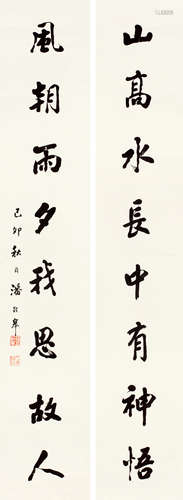 山高水長中有神悟
風朝雨夕我思故人
己卯秋日潘龄皋